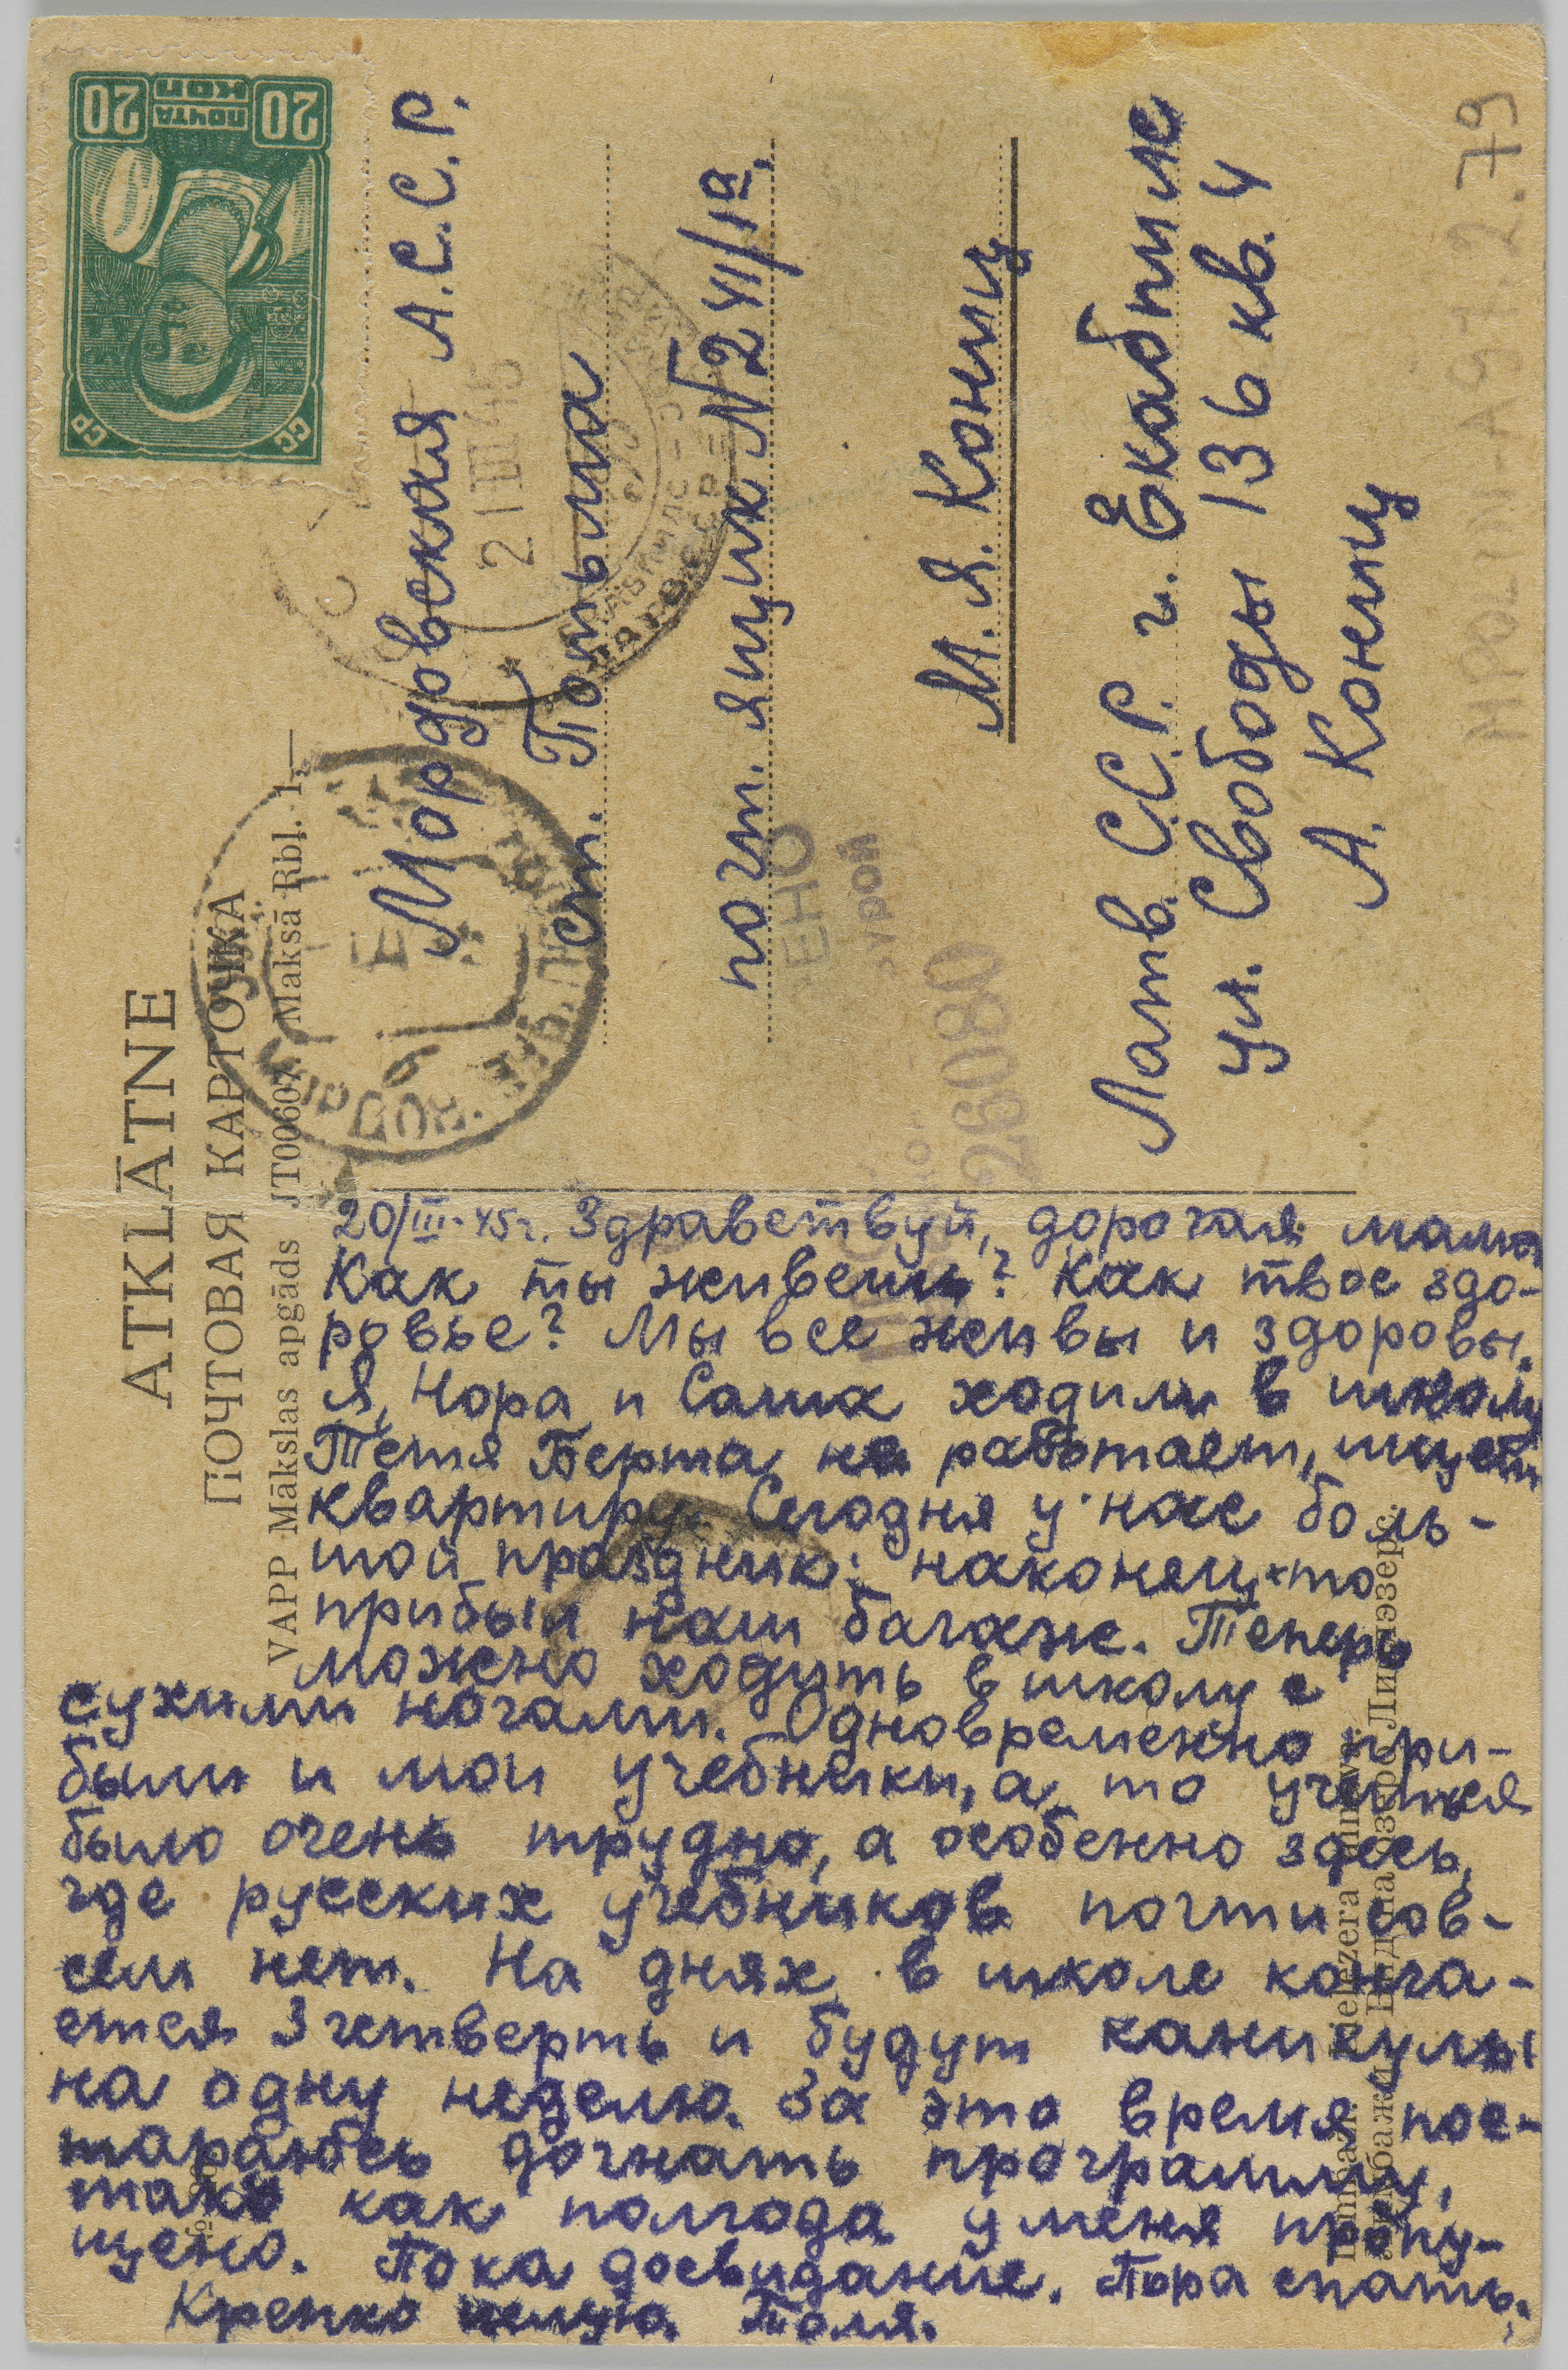 ATKLĀTNE
ПОЧТОВАЯ КАРТОЧКА
VAPP Mākslas apgāds JT00607. Maksā Rbļ. 1,—
СС СР
ПОЧТА
20 КОП 20
Мордовская А.С.С.Р.
ст. Потьма
почт. ящик №241/1а.
М. Я. Кониц
Латв. С.С.Р. г. Екабпилс
ул. Свободы 136 кв. 4
А. Кониц
21 III 45
26080
MPOLIN-A97.2.79
20/III-45г. Здравствуй, дорогая мама
Как ты живешь? Как твое здо-
ровье? Мы все живы и здоровы.
Я, Нора и Саша ходили в школу
Тетя Берта не работает, ищет
квартиру. Сегодня у нас боль-
шой праздник: наконец-то
прибыл наш багаж. Теперь
можно ходить в школу с
сухими ногами. Одновременно при-
были и мои учебники, а то учиться
было очень трудно, а особенно здесь,
где русских учебников почти сов-
сем нет. На днях в школе конча-
ется 3 четверть и будут каникулы
на одну неделю. За это время пос-
тараюсь догнать программу,
так как полгода у меня пропу-
щено. Пока досвидание. Пора спать.
Крепко целую. Толя.